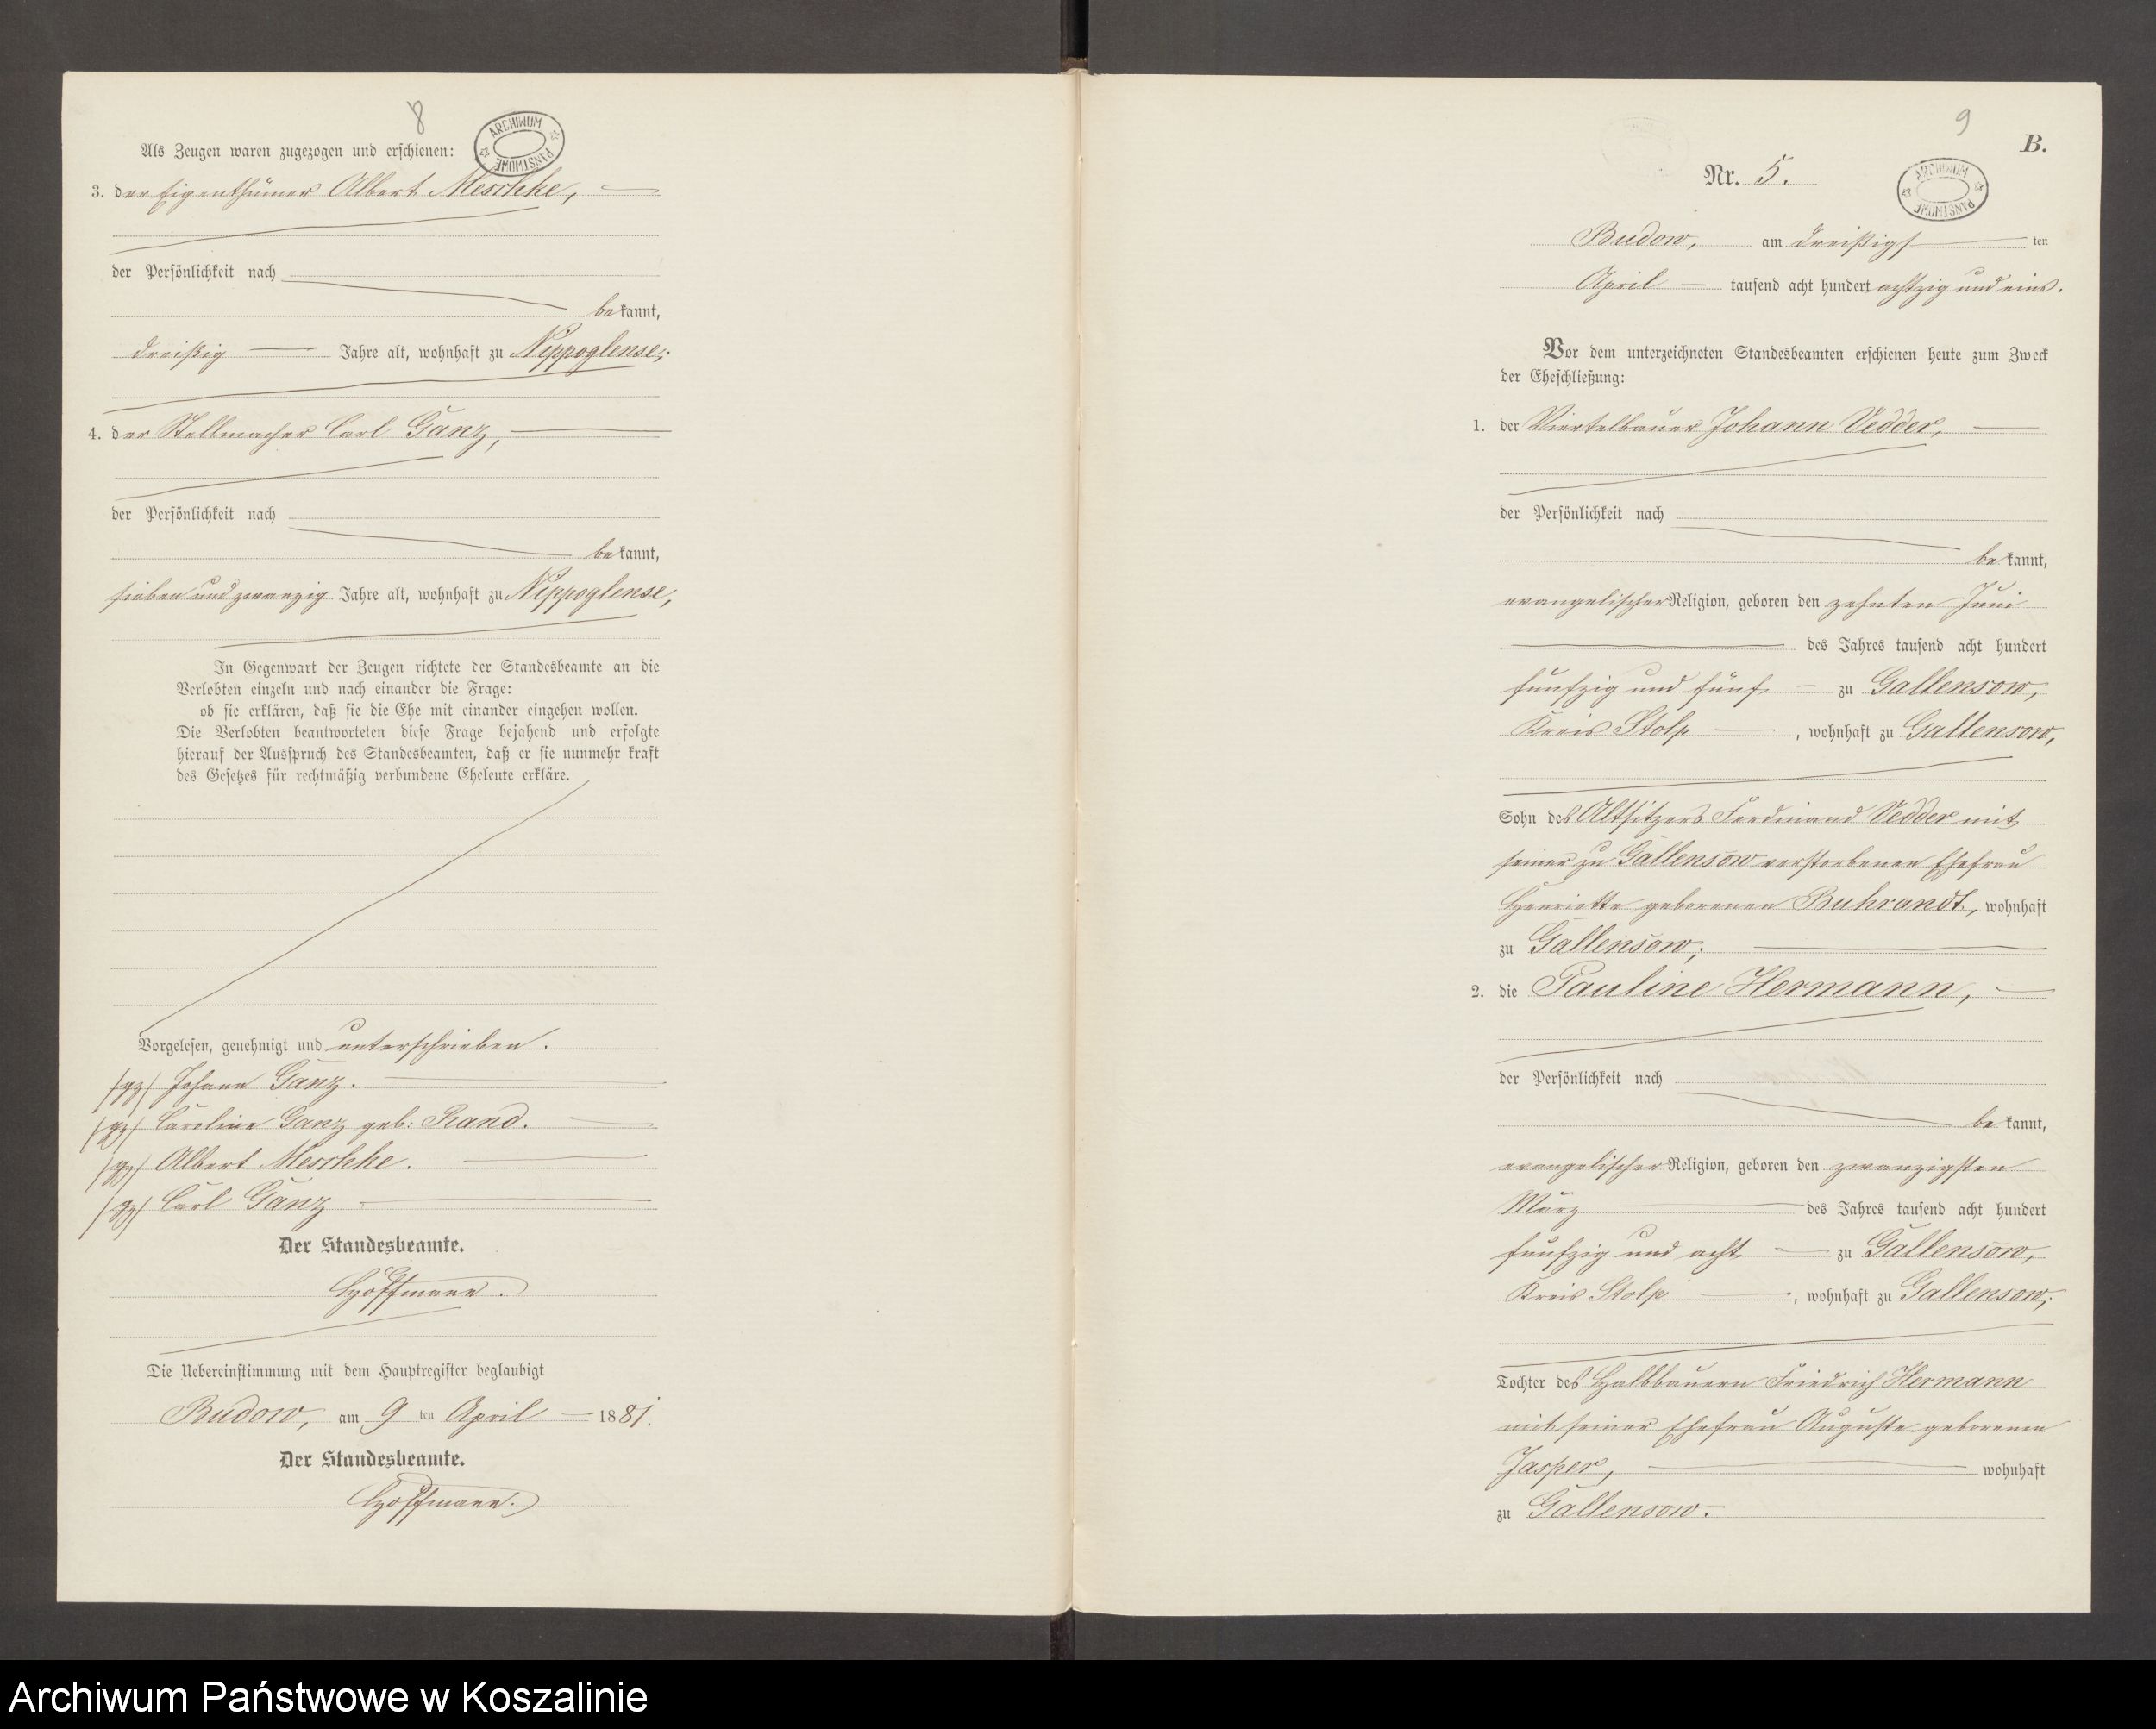 8
ARCHIWUM PAŃSTWOWE
Als Zeugen waren zugezogen und erschienen:
3. der Eigenthümer Albert Meschke,
der Persönlichkeit nach
bekannt,
dreißig Jahre alt, wohnhaft zu Nippoglense;
4. der Stellmacher Carl Ganz,
der Persönlichkeit nach
bekannt,
sieben und zwanzig Jahre alt, wohnhaft zu Nippoglense,
In Gegenwart der Zeugen richtete der Standesbeamte an die
Verlobten einzeln und nach einander die Frage:
ob sie erklären, daß sie die Ehe mit einander eingehen wollen.
Die Verlobten beantworteten diese Frage bejahend und erfolgte
hierauf der Ausspruch des Standesbeamten, daß er sie nunmehr kraft
des Gesetzes für rechtmäßig verbundene Eheleute erkläre.
Vorgelesen, genehmigt und unterschrieben.
/gz/ Johann Ganz.
/gz/ Caroline Ganz geb: Rand.
/gz/ Albert Meschke.
/gz/ Carl Ganz
Der Standesbeamte.
Hoffmann.
Die Uebereinstimmung mit dem Hauptregister beglaubigt
Budow, am 9ten April 1881.
Der Standesbeamte.
Hoffmann.
9
B.
Nr. 5.
ARCHIWUM PAŃSTWOWE
Budow, am dreißigsten
April tausend acht hundert achtzig und eins.
Vor dem unterzeichneten Standesbeamten erschienen heute zum Zweck
der Eheschließung:
1. der Viertelbauer Johann Vedder,
der Persönlichkeit nach
bekannt,
evangelischer Religion, geboren den zehnten Juni
des Jahres tausend acht hundert
fünfzig und fünf zu Gallensow,
Kreis Stolp, wohnhaft zu Gallensow,
Sohn des Altsitzers Ferdinand Vedder mit
seiner zu Gallensow verstorbenen Ehefrau
Henriette geborenen Buhrandt, wohnhaft
zu Gallensow;
2. die Pauline Hermann,
der Persönlichkeit nach
bekannt,
evangelischer Religion, geboren den zwanzigsten
März des Jahres tausend acht hundert
fünfzig und acht zu Gallensow,
Kreis Stolp, wohnhaft zu Gallensow;
Tochter des Halbbauern Friedrich Hermann
mit seiner Ehefrau Auguste geborenen
Jasper, wohnhaft
zu Gallensow.
Archiwum Państwowe w Koszalinie